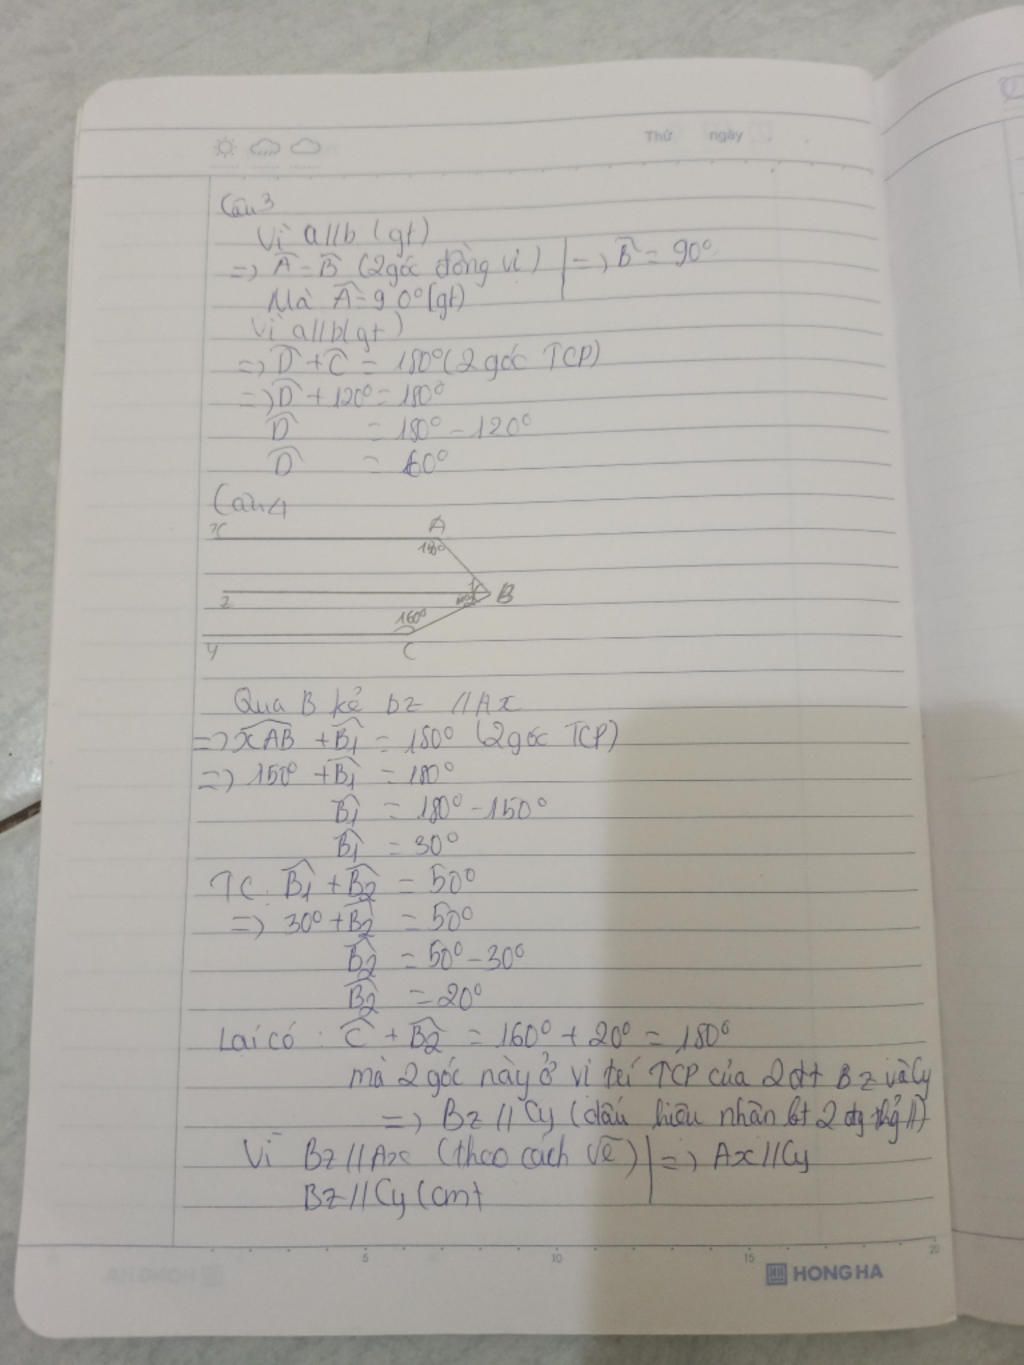 Thứ ngày
Câu 3
Vì a//b (gt)
=> Â = B̂ (2 góc đồng vị) => B̂ = 90°
Mà Â = 90° (gt)
Vì a//b (gt)
=> D̂ + Ĉ = 180° (2 góc TCP)
=> D̂ + 120° = 180°
D̂ = 180° - 120°
D̂ = 60°
Câu 4
x A
150°
1
z B
160°
y C
Qua B kẻ bz // Ax
=> xAB + B1 = 180° (2 góc TCP)
=> 150° + B1 = 180°
B1 = 180° - 150°
B1 = 30°
TC B1 + B2 = 50°
=> 30° + B2 = 50°
B2 = 50° - 30°
B2 = 20°
Lại có : Ĉ + B2 = 160° + 20° = 180°
mà 2 góc này ở vị trí TCP của 2 đt Bz và Cy
=> Bz // Cy (dấu hiệu nhận bt 2 đg thg //)
Vì Bz // Ax (theo cách vẽ) => Ax // Cy
Bz // Cy (cmt
5 10 15 20
HONG HA